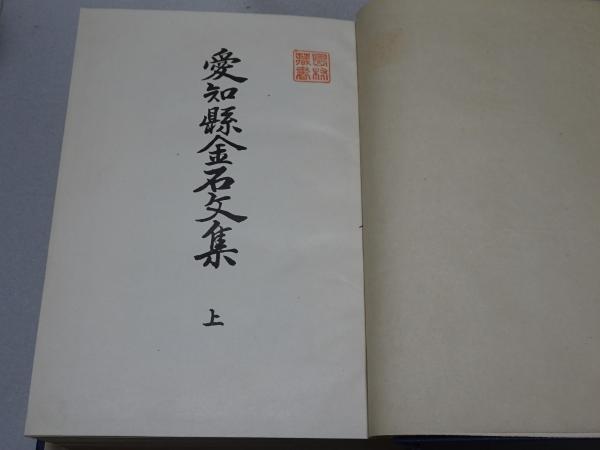 愛知縣金石文集
上